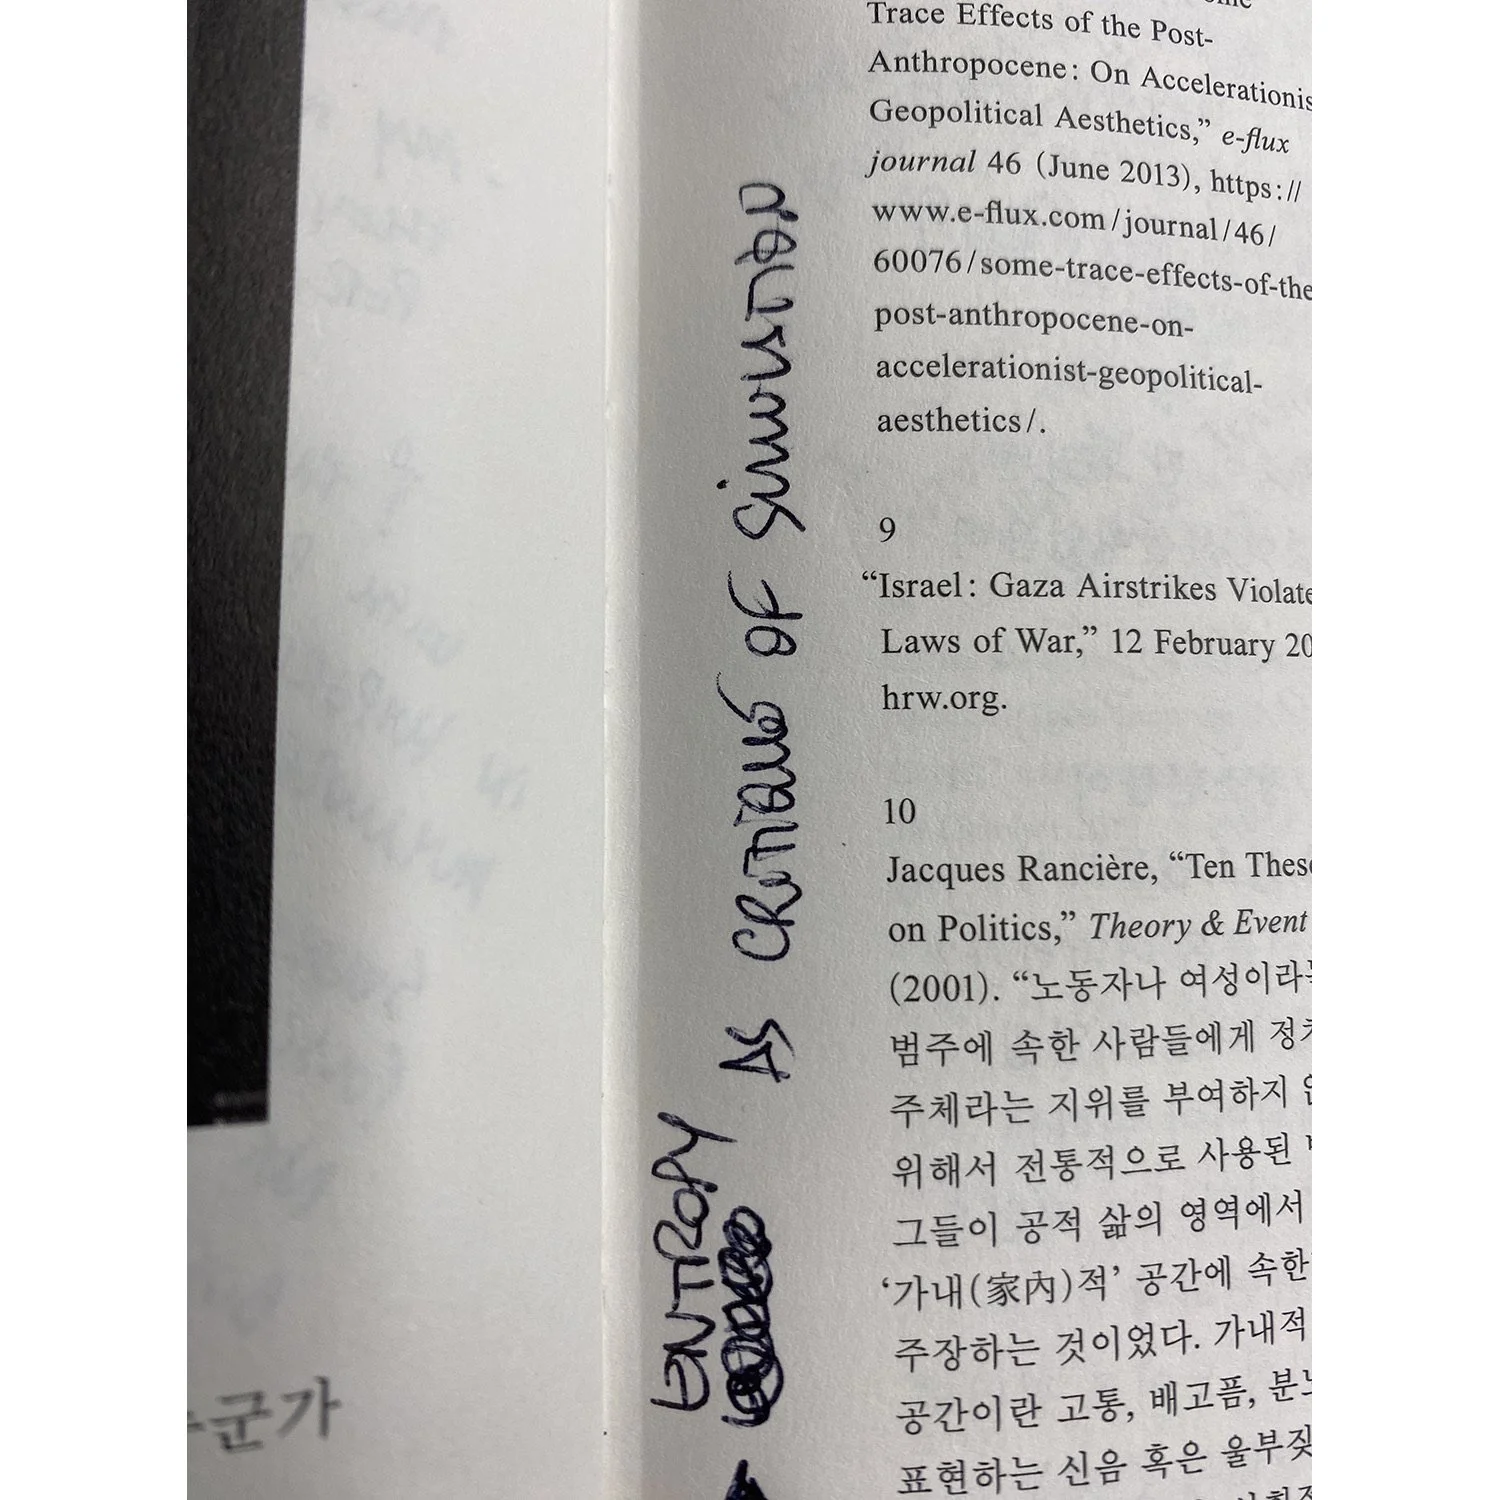 Trace Effects of the Post-
Anthropocene: On Accelerationis
Geopolitical Aesthetics,” e-flux
journal 46 (June 2013), https://
www.e-flux.com/journal/46/
60076/some-trace-effects-of-the
post-anthropocene-on-
accelerationist-geopolitical-
aesthetics/.
9
“Israel: Gaza Airstrikes Violate
Laws of War,” 12 February 20
hrw.org.
10
Jacques Rancière, “Ten Thes
on Politics,” Theory & Event
(2001). “노동자나 여성이라
범주에 속한 사람들에게 정치
주체라는 지위를 부여하지
위해서 전통적으로 사용된
그들이 공적 삶의 영역에서
‘가내(家內)적’ 공간에 속한
주장하는 것이었다. 가내적
공간이란 고통, 배고픔, 분노
표현하는 신음 혹은 울부짖
ENTROPY
AS CRITIQUE OF SIMULATION
군가